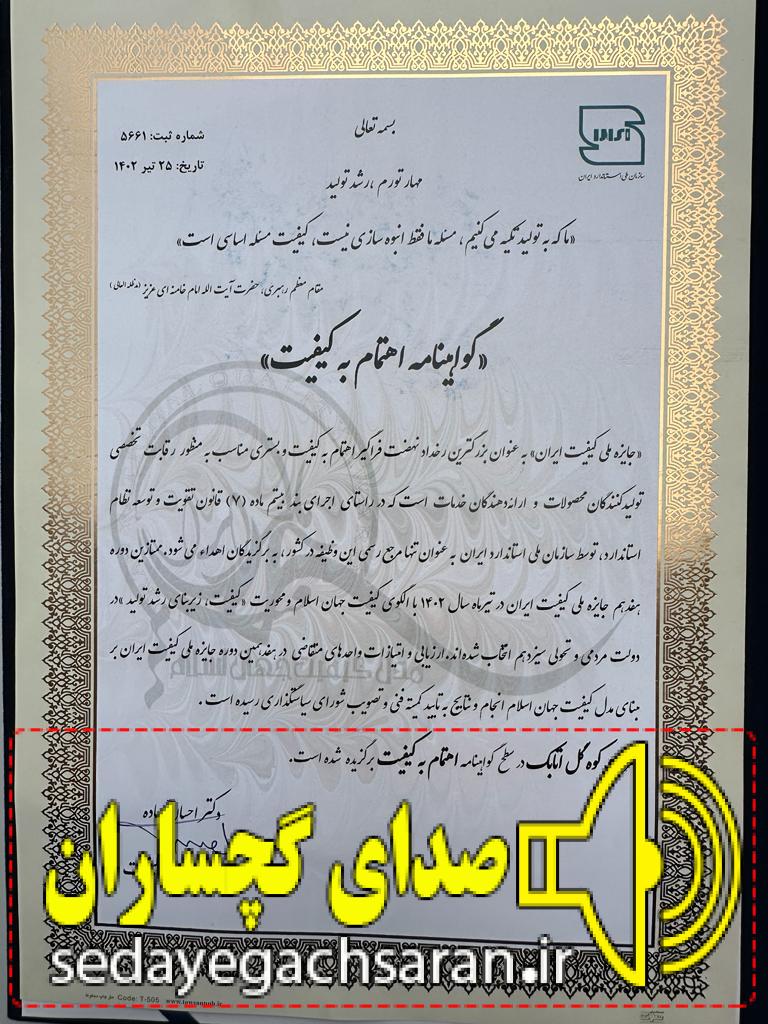 بسمه تعالی
شماره ثبت: ۵۶۶۱
تاریخ: ۲۵ تیر ۱۴۰۲
سازمان ملی استاندارد ایران
مهار تورم ،رشد تولید
«ما که به تولید تکیه می کنیم ، مسئله ما فقط انبوه سازی نیست، کیفیت مسئله اساسی است»
مقام معظم رهبری، حضرت آیت الله امام خامنه ای عزیز (مدظله العالی)
«گواهینامه اهتمام به کیفیت»
«جایزه ملی کیفیت ایران» به عنوان بزرگترین رخداد نهضت فراگیر اهتمام به کیفیت و بستری مناسب به منظور رقابت تخصصی
تولیدکنندگان محصولات و ارائه‌دهندگان خدمات است که در راستای اجرای بند بیستم ماده (۷) قانون تقویت و توسعه نظام
استاندارد، توسط سازمان ملی استاندارد ایران به عنوان تنها مرجع رسمی این وظیفه در کشور ، به برگزیدگان اهداء می شود. ممتازین دوره
هفدهم جایزه ملی کیفیت ایران در تیرماه سال ۱۴۰۲ با الگوی کیفیت جهان اسلام و محوریت «کیفیت، زیربنای رشد تولید »در
دولت مردمی و تحولی سیزدهم انتخاب شده‌اند. ارزیابی و امتیازات واحدهای متقاضی در هفدهمین دوره جایزه ملی کیفیت ایران بر
مبنای مدل کیفیت جهان اسلام انجام و نتایج به تایید کمیته فنی و تصویب شورای سیاستگذاری رسیده است .
کوه گل اتابک در سطح گواهینامه اهتمام به کیفیت برگزیده شده است.
دکتر
صدای گچساران
sedayegachsaran.ir
Code: T-505